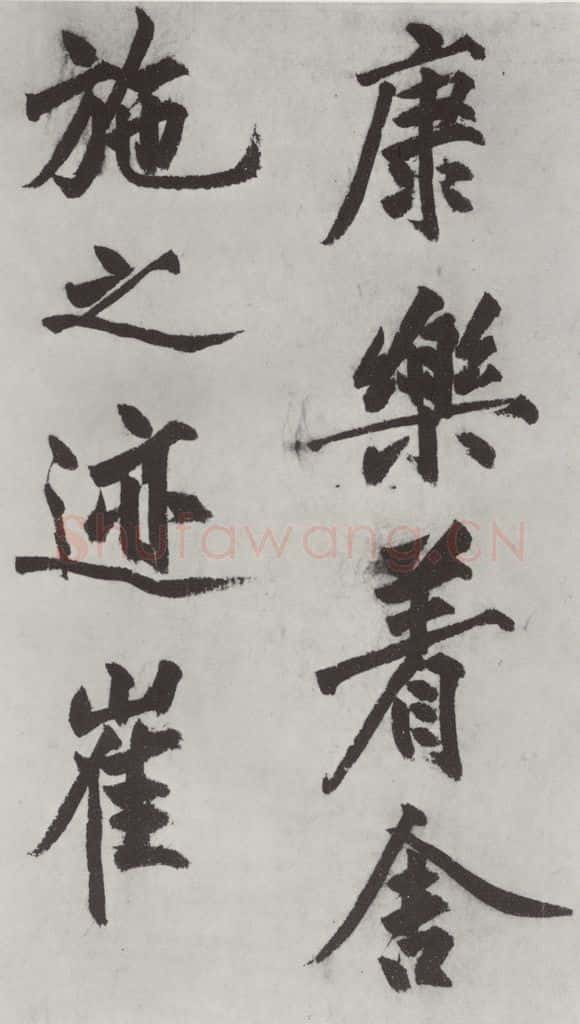 康樂着舍
施之迹崔
Shufawang.CN